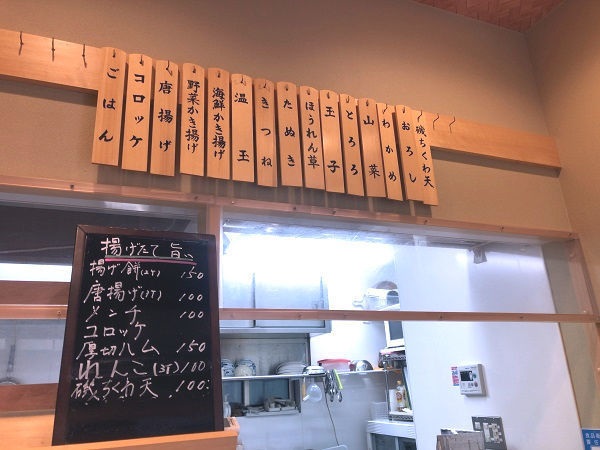 ごはん
コロッケ
唐揚げ
野菜かき揚げ
海鮮かき揚げ
温玉
きつね
たぬき
ほうれん草
玉子
とろろ
山菜
わかめ
おろし
磯ちくわ天
揚げたて 旨い
揚げ餅(2ケ) 150
唐揚げ(1ケ) 100
メンチ 100
コロッケ
厚切ハム 150
れんこ(3ケ) 100
磯ちくわ天 100